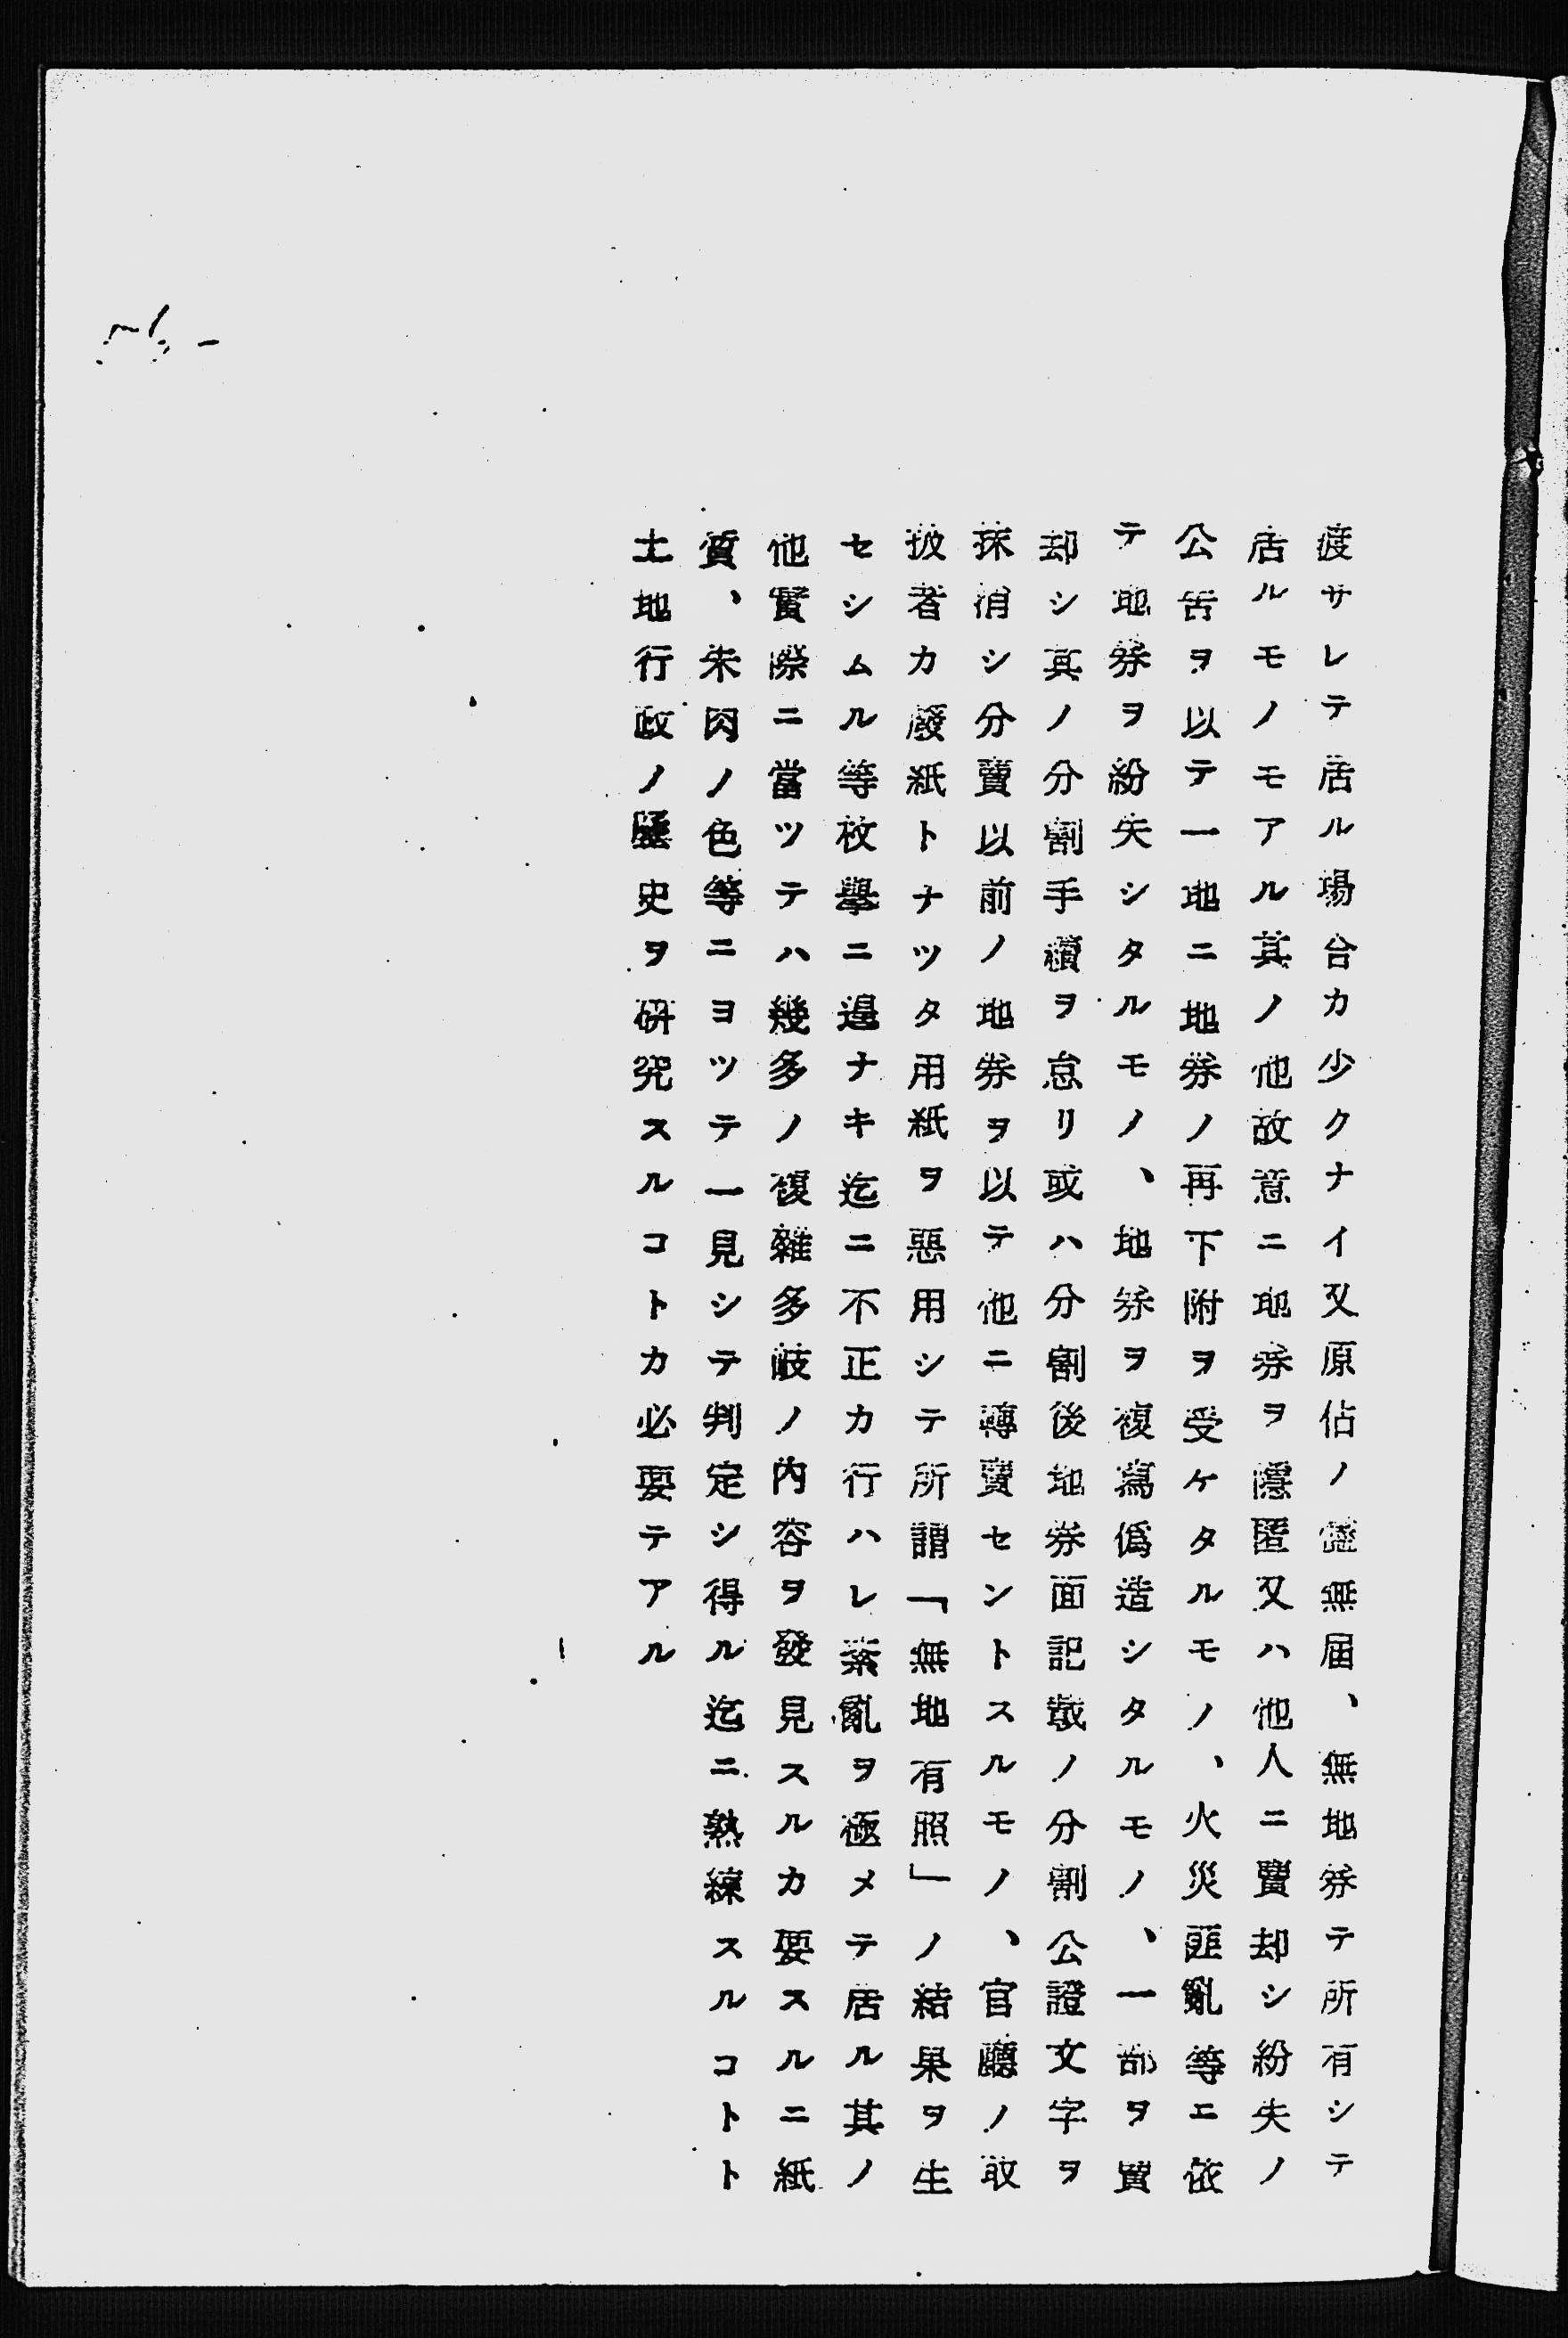 渡サレテ居ル場合カ少クナイ又原佔ノ儘無届、無地券テ所有シテ
居ルモノモアル其ノ他故意ニ地券ヲ隱匿又ハ他人ニ賣却シ紛失ノ
公告ヲ以テ一地ニ地券ノ再下附ヲ受ケタルモノ、火災匪亂等ニ依
テ地券ヲ紛失シタルモノ、地券ヲ複寫僞造シタルモノ、一部ヲ賣
却シ眞ノ分割手續ヲ怠リ或ハ分割後地券面記載ノ分割公證文字ヲ
抹消シ分賣以前ノ地券ヲ以テ他ニ轉賣セントスルモノ、官廳ノ取
扱者カ廢紙トナツタ用紙ヲ惡用シテ所謂「無地有照」ノ結果ヲ生
セシムル等枚擧ニ遑ナキ迄ニ不正カ行ハレ紊亂ヲ極メテ居ル其ノ
他實際ニ當ツテハ幾多ノ複雜多岐ノ内容ヲ發見スルカ要スルニ紙
質、朱肉ノ色等ニヨツテ一見シテ判定シ得ル迄ニ熟練スルコトト
土地行政ノ歷史ヲ研究スルコトカ必要テアル